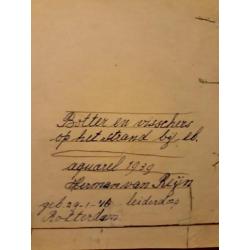 Botter en visschers
op het strand bij eb.
aquarel 1939
Herman van Reijn
geb. 29-1-46 leiderdorp
Rotterdam